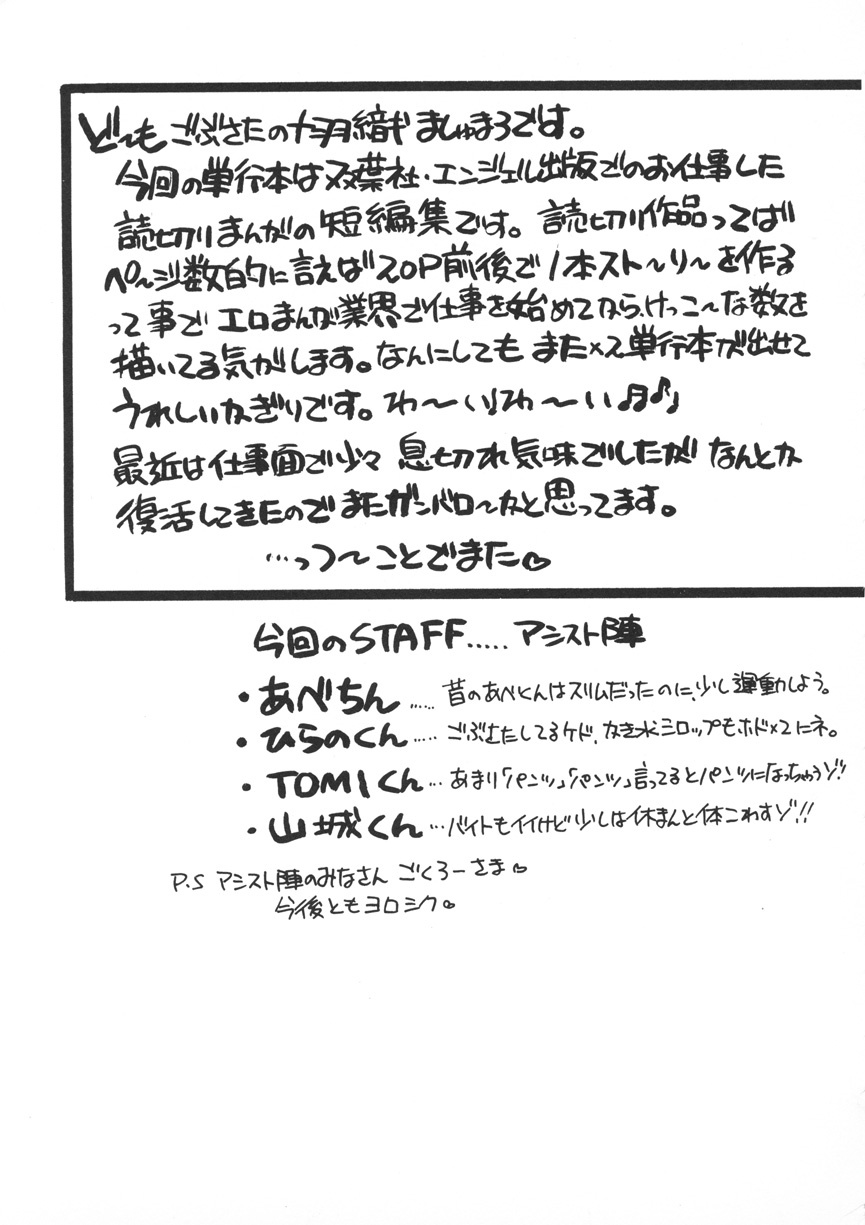 ど〜もごぶさたの十羽織ましゅまろです。
今回の単行本は双葉社・エンジェル出版でのお仕事した
読切りまんがの短編集です。読切り作品ってば
ペ〜ジ数的に言えば20P前後で1本スト〜リ〜を作る
って事でエロまんが業界で仕事を始めてから、けっこ〜な数を
描いてる気がします。なんにしてもまた×2単行本が出せて
うれしいかぎりです。わ〜い♩わ〜い♫♪
最近は仕事面で少々息切れ気味でしたがなんとか
復活してきたのでまたガンバロ〜かと思ってます。
…っつ〜ことでまた♡
今回のSTAFF.....アシスト陣
・あべちん……昔のあべくんはスリムだったのに、少し運動しよう。
・ひらのくん……ごぶさたしてるケド、かき氷シロップもホド×2にネ。
・TOMIくん…あまり「パンツ」「パンツ」言ってるとパンツになっちゃうゾ!!
・山城くん…バイトもイイけど少しは休まんと体こわすゾ!!
P.S アシスト陣のみなさん ごくろーさま♡
今後ともヨロシク。